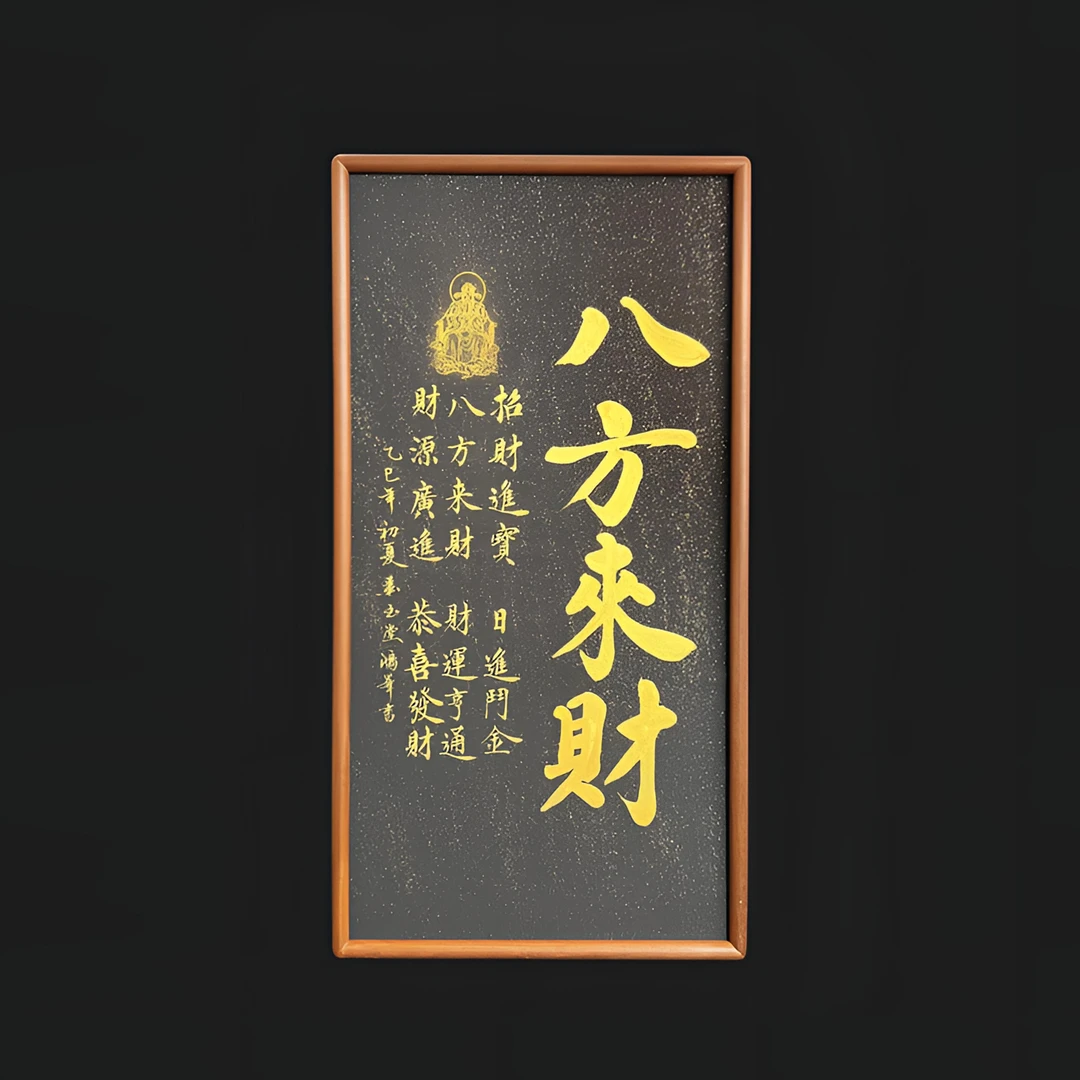 八方來財
招財進寶 日進鬥金
八方来財 財運亨通
財源廣進 恭喜發財
乙巳年初夏 玉堂 書